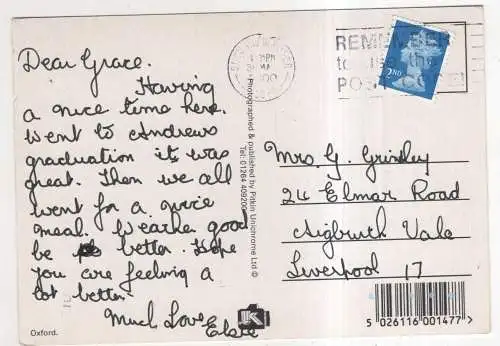 Dear Grace.
Having
a nice time here.
Went to Andrews
graduation it was
great. Then we all
went for a nice
meal. Weather good
be better. Hope
you are feeling a
lot better.
Much Love Elsie
Oxford.
Photographed & published by Pitkin Unichrome Ltd ©
Tel: 01264 409200
REMEMBER
to
POST
2ND
Mrs. G. Grindley
24 Elmar Road
Aigburth Vale
Liverpool 17
5 026116 001477 >